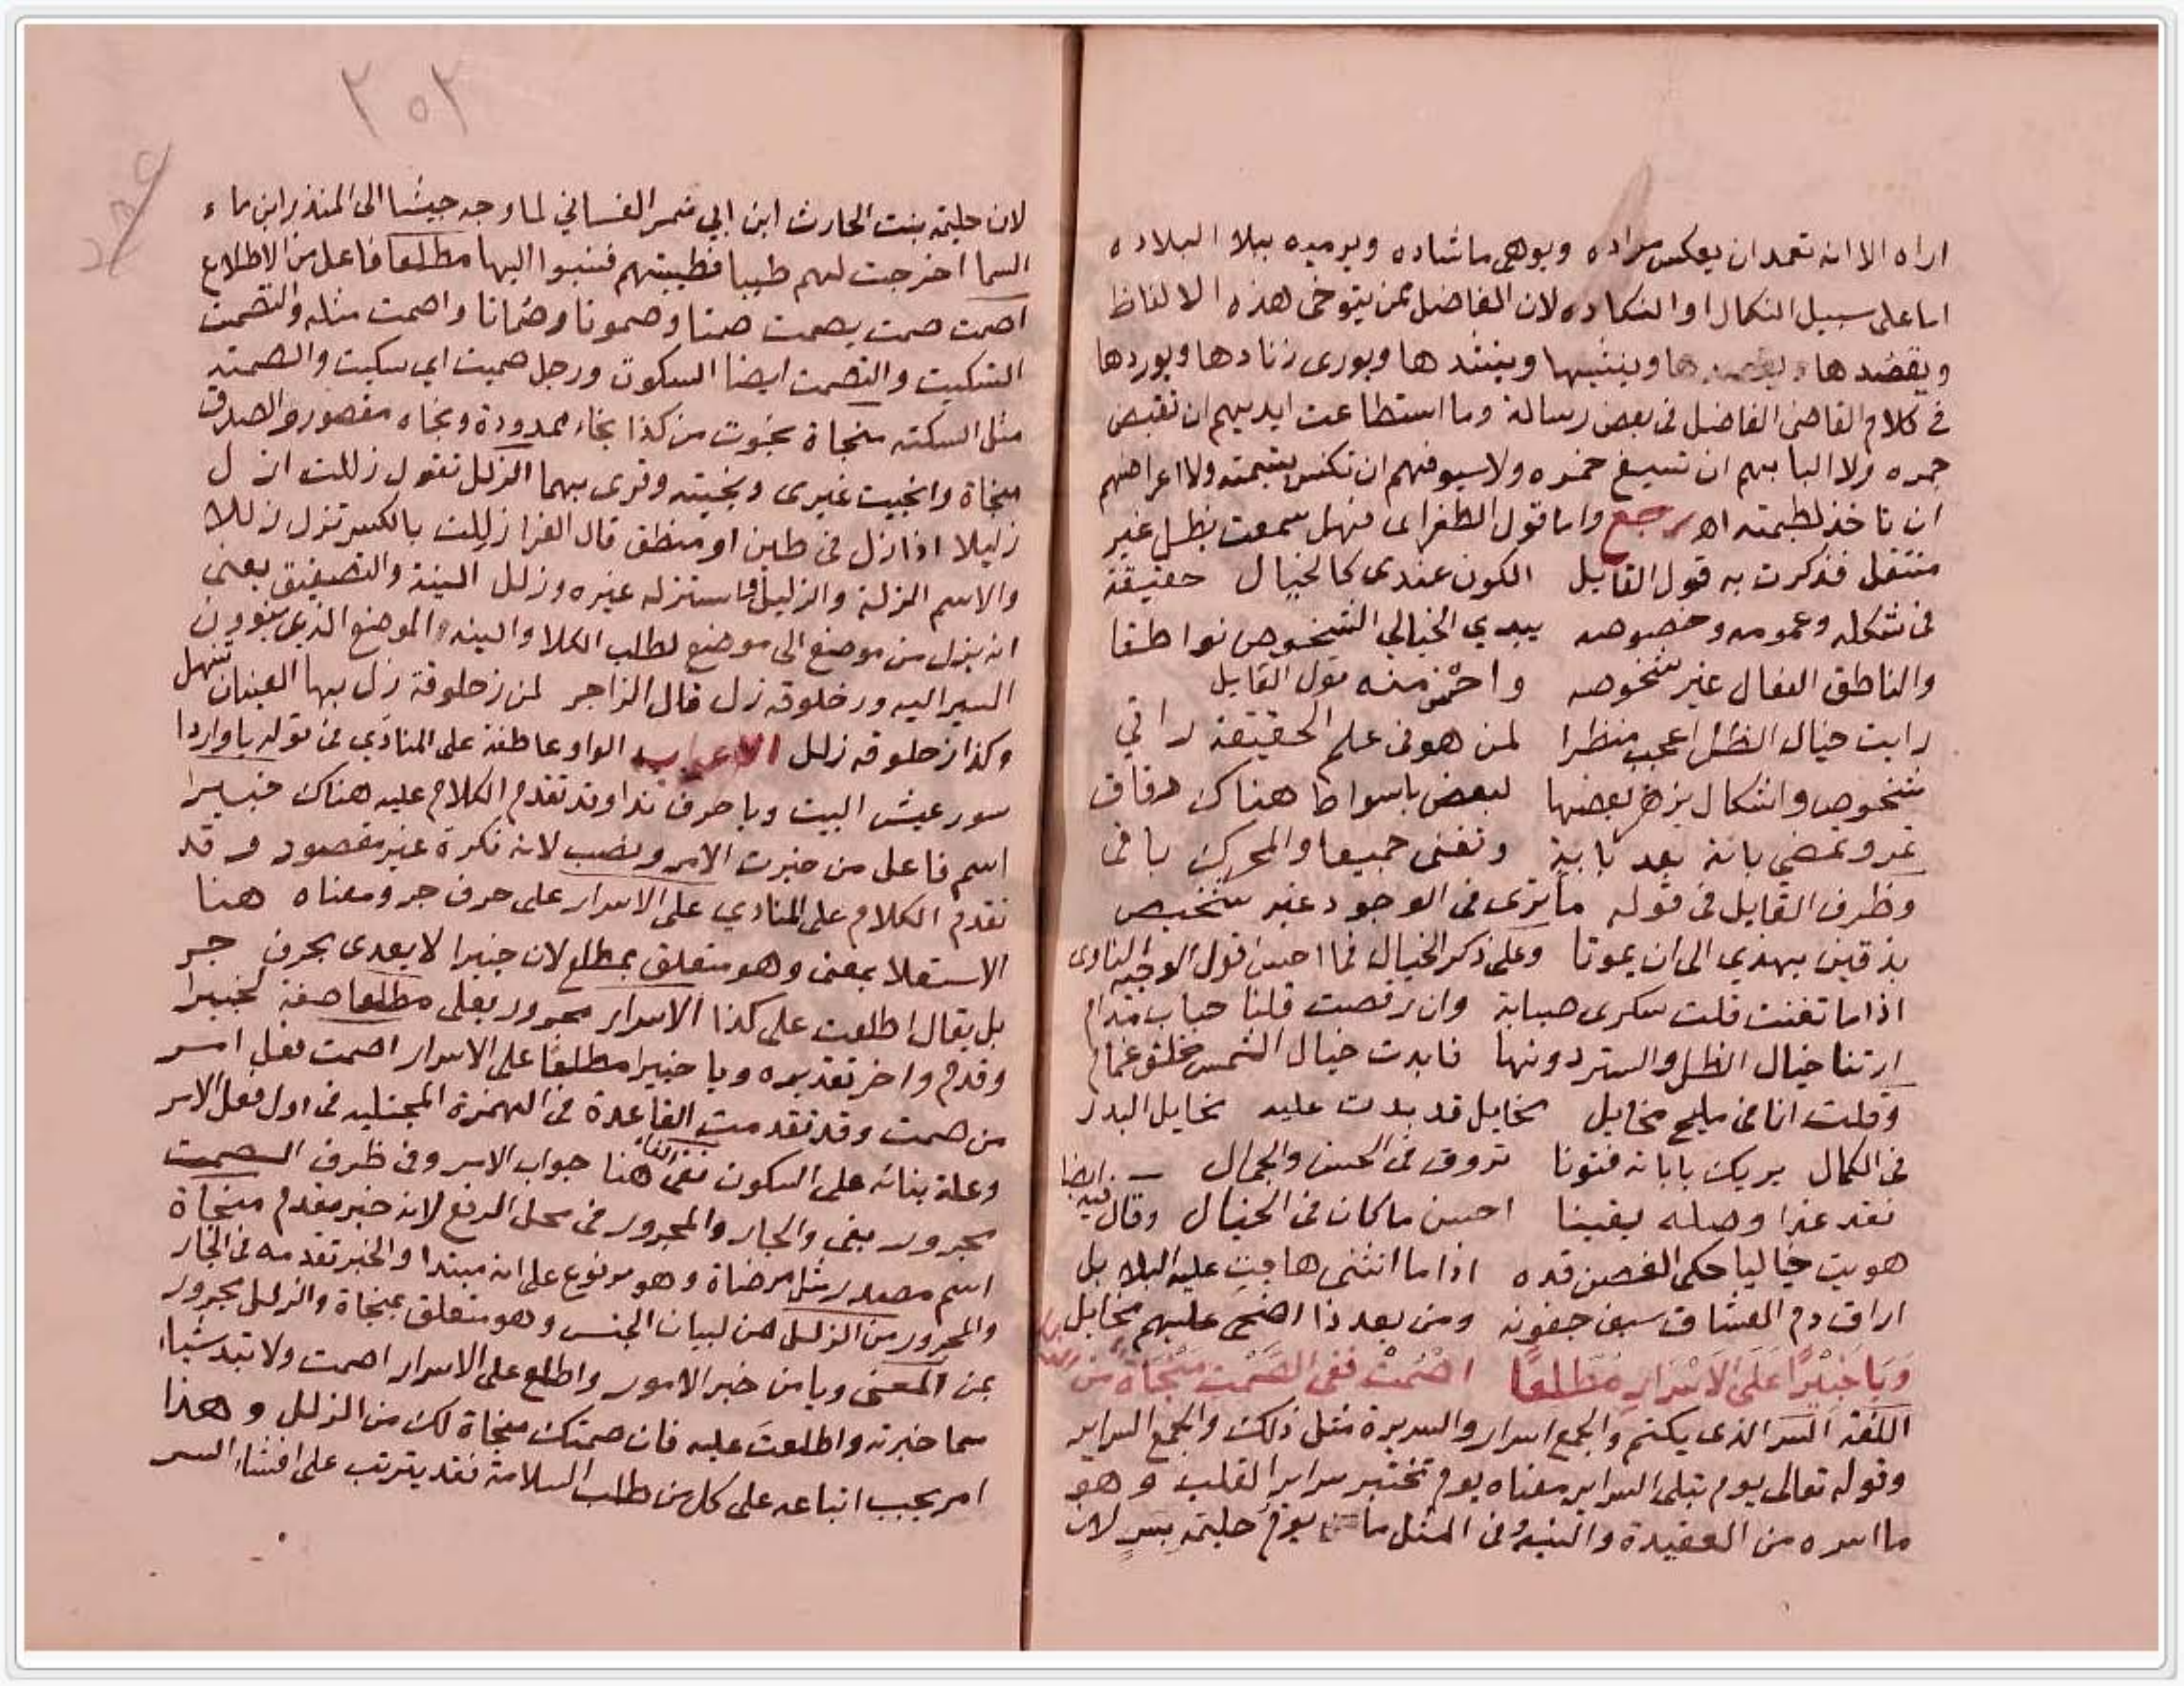 اراه الا انه تعمد ان يعكس مراده ويوهى ما شاده ويرميه ببلا البلاده
اما على سبيل النكال او النكاده لان الفاضل ممن يتوخى هذه الالفاظ
ويقصدها وينشيها وينشدها ويورى زنادها ويوردها
فى كلام القاضى الفاضل فى بعض رسالة وما استطاعت ايديهم ان تقبض
جمره ولا البابهم ان تسيغ خمره ولا سيوفهم ان تكنس يتيمته ولا اعراضهم
ان تاخذ لطيمته اهـ رجع واما قول الطغراى فهل سمعت بظل غير
منتقل فذكرت به قول القايل الكون عندى كالخيال حقيقة
فى شكله وعمومه وخصوصه يبدي الخيالي الشخوص نواطقا
والناطق الفعال غير شخوصه واحسن منه قول القايل
رايت خيال الظل اعجب منظرا لمن هو فى علم الحقيقة راقي
شخوص واشكال يزهر بعضها لبعض باسواط هناك دقاق
تمر وتمضي بابة بعد بابية وتفنى جميعا والمحرك باقى
وظرف القايل فى قوله ما ترى فى الوجود غير شخيص
بذقين يهذي الى ان يموتا وعلى ذكر الخيال فما احسن قول الوجيه المناوى
اذا ما تغنت قلت سكرى صبابة وان رقصت قلنا حباب مدام
ارتنا خيال الظل والستر دونها فابدت خيال الشمس خلف غمام
وقلت انا فى مليح مخايل مخايل قد بدت عليه مخايل البدر
فى الكمال يريك باباته فنونا تروق فى الحسن والجمال
فقد غدا وصله يقينا احسن ما كان فى الخيال وقال فيه ايضا
هويت خياليا حكى الغصن قده اذا ما انثنى هاجت عليه البلابل
اراق دم العشاق سيف جفونه ومن بعد ذا اضحى عليهم مخايل
وَيَا خَبِيْرًا عَلَى الاَسْرَارِ مُطَّلِعًا اصْمُتْ فَفِى الصَّمْتِ مَنْجَاةٌ مِنَ الزلل
اللغة السر الذى يكتم والجمع اسرار والسريرة مثل ذلك والجمع السراير
وقوله تعالى يوم تبلى السراير معناه يوم تختبر سراير القلب وهو
ما اسره من العقيدة والنية وفى المثل ما يوم حليمة بسر لان
٣٠٢
لان حليمة بنت الحارث ابن ابي شمر الغساني لما وجه جيشا الى المنذر ابن ماء
السما اخرجت لهم طيبا فطيبتهم فنسبوا اليها مطلعا فاعل من الاطلاع
اصمت صمت يصمت صمتا وصموتا وصماتا واصمت مثله والتصميت
التسكيت والتصمت ايضا السكوت ورجل صميت اي سكيت والصمتة
مثل السكته منجاة نجوت من كذا نجاء ممدودة ونجاه مقصور والصدق
منجاة وانجيت غيرى ونجيته وقرى بهما الزلل تقول زللت ازل
زليلا اذا زل فى طين او منطق قال الفرا زللت بالكسر تزل زللا
والاسم الزلة والزليلا واستزله غيره وزلل النية والتصفيق يعنى
انه ينزل من موضع الى موضع لطلب الكلا والنيه الموضع الذى ينوون
السير اليه وزحلوقه زل قال الراجز لمن زحلوقة زل بها العينان تنهل
وكذا زحلوقه زلل الاعراب الواو عاطفة على المنادي فى قوله يا واردا
سور عيش البيت ويا حرف ندا وقد تقدم الكلام عليه هناك خبيرا
اسم فاعل من خبرت الامر ونصب لانه نكرة غير مقصود وقد
تقدم الكلام على المنادي على الاسرار على حرف جر ومعناه هنا
الاستعلا بمعنى وهو متعلق بمطلع لان خبيرا لا يعدى بحرف جر
بل يقال اطلعت على كذا الاسرار مجرور بعلى مطلعا صفة لخبيرا
وقدم واخر تقديره ويا خبيرا مطلعا على الاسرار اصمت فعل امر
من صمت وقد تقدمت القاعدة فى الهمزة المجتلبه فى اول فعل الامر
وعلة بنائه على السكون ففى الفا هنا جواب الامر وفى ظرف الصمت
مجرور بفى والجار والمجرور فى محل الرفع لانه خبر مقدم منجاة
اسم مصدر مثل مرضاة وهو مرفوع على انه مبتدا والخبر تقدمه فى الجار
والمجرور من الزلل من لبيان الجنس وهو متعلق بمنجاة والزلل مجرور
بمن المعنى ويا من خبر الامور واطلع على الاسرار اصمت ولا تبد شياء
مما خبرته واطلعت عليه فان صمتك منجاة لك من الزلل وهذا
امر يجب اتباعه على كل من طلب السلامة فقد يترتب على افشاء السر